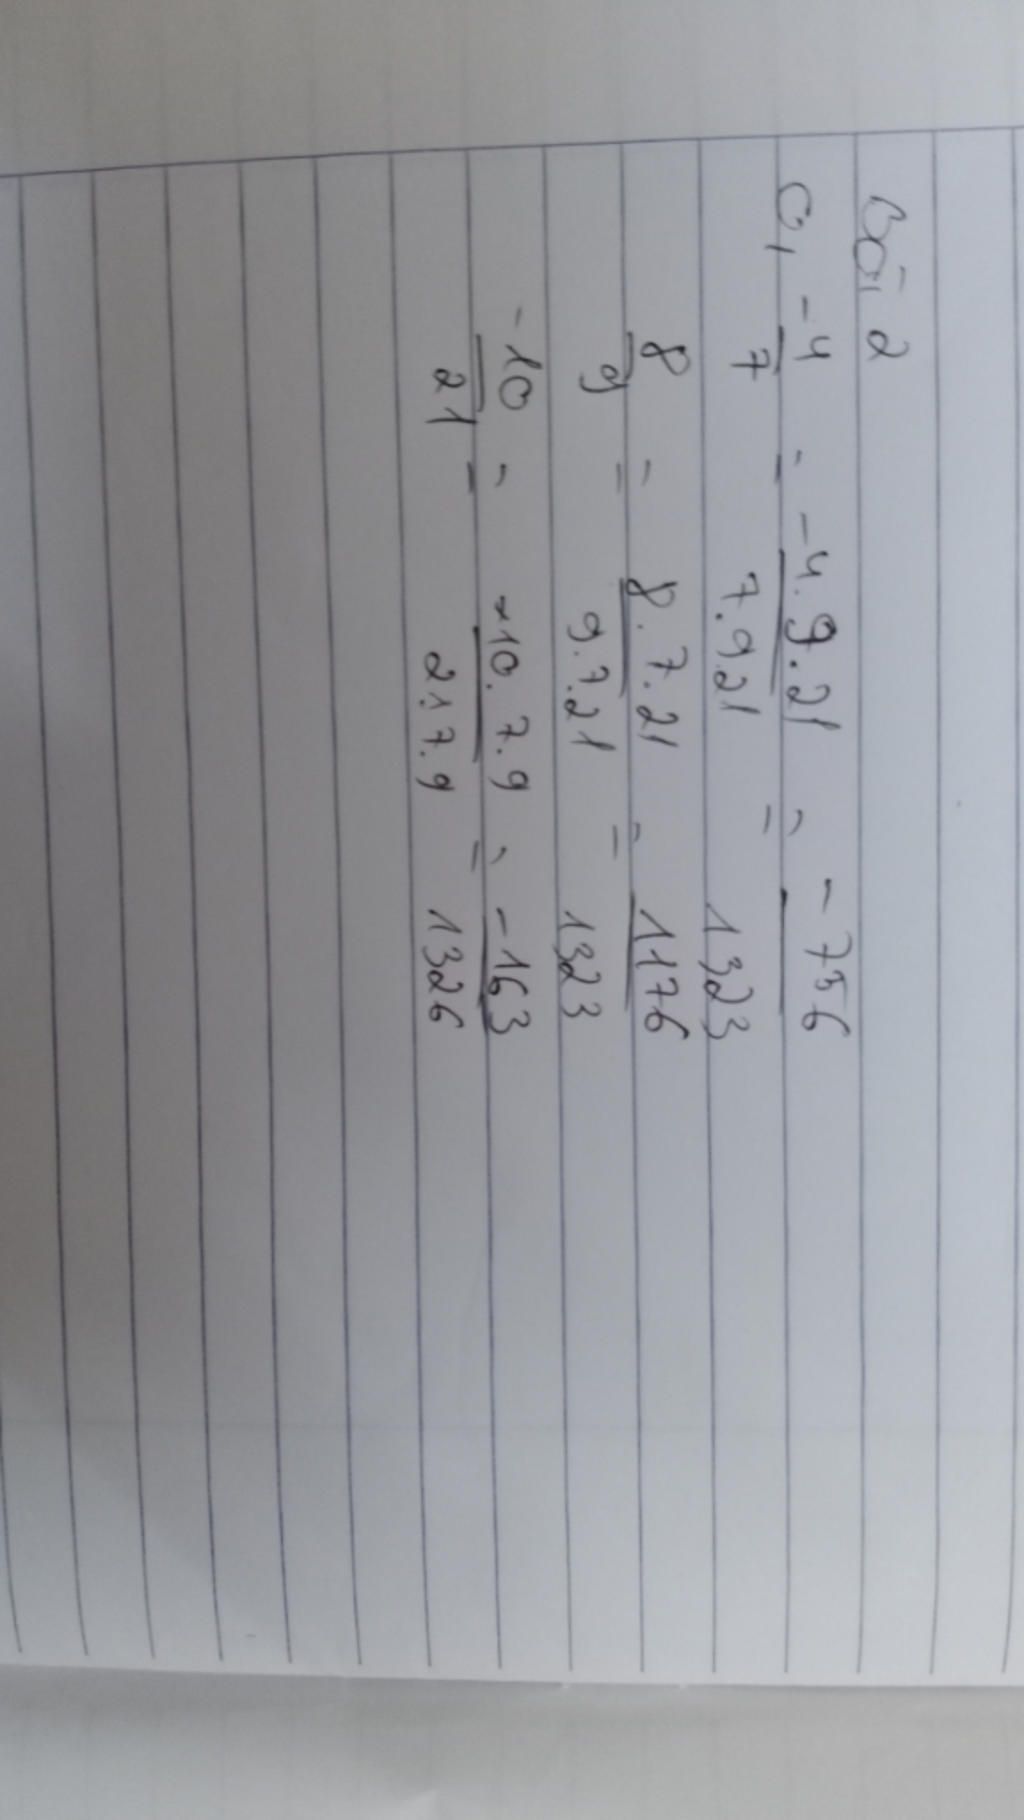 Bài 2
c, -4/7 = -4.9.21/7.9.21 = -756/1323
8/9 = 8.7.21/9.7.21 = 1176/1323
-10/21 = -10.7.9/21.7.9 = -163/1326